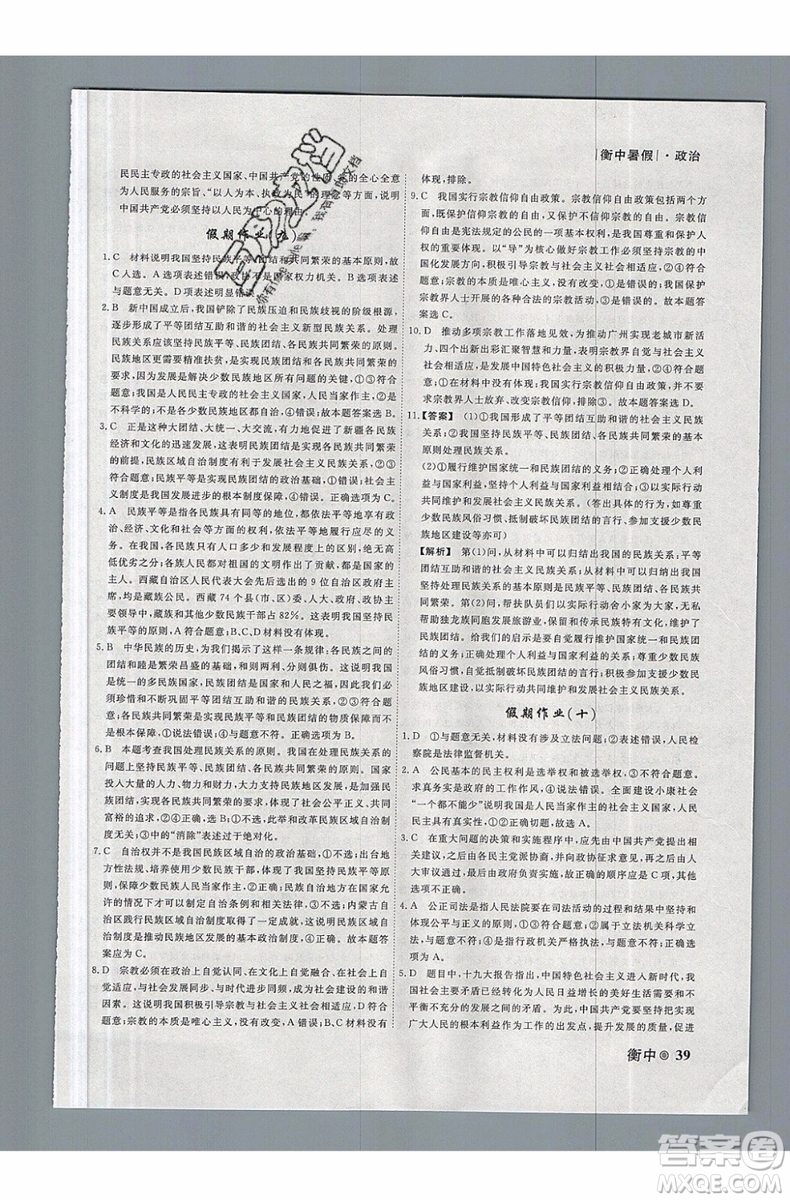 衡中暑假·政治
民民主专政的社会主义国家、中国共产党的性质、党的全心全意
为人民服务的宗旨、“以人为本、执政为民”的理念等方面，说明
中国共产党必须坚持以人民为中心的理由。
假期作业(九)
1.C 材料说明我国坚持民族平等、团结和共同繁荣的基本原则，故
C入选。A选项表述错误，政协不是国家权力机关。B选项表述
与题意无关。D表述明显错误。
2.B 新中国成立后，我国铲除了民族压迫和民族歧视的阶级根源，
逐步形成了平等团结互助和谐的社会主义新型民族关系。处理
民族关系应坚持民族平等、民族团结和各民族共同繁荣的原则。
民族地区更需要精准扶贫，是实现民族团结和共同繁荣的体现。
发展是解决少数民族地区所有问题的关键，①③④正确且符合
题意。民族地区实行民族区域自治，人民当家作主，②的表述是
不科学的；少数民族地区自治，④错误。故本题答案选B。
3.C 正是这一大团结、大统一、大交流，有力推动了新疆各民族
经济和文化的迅速发展，这表明民族团结是实现各民族共同繁荣
的保障，民族区域自治制度有利于发展社会主义民族关系，②③
正确；民族平等是实现民族团结的政治基础，①错误；社会主
义制度是我国发展进步的根本制度保障，④错误。正确选项C。
4.A 民族平等是指各民族具有同等的地位，都依法平等享有在政
治、经济、文化和社会等方面的权利，依法平等地履行应尽的义
务。在我国，各民族没有大小之别，先进落后之分，也没有高
低优劣之分；各民族人民都对祖国的文明做出了贡献，都是国家的
主人。西藏自治区人民代表大会先后选出的9位自治区政府主
席，都由藏族公民担任。西藏74个县(市、区)人大、政府、政协主
要领导，藏族和其他少数民族干部占82%。这说明我国坚持民
族平等的原则，A符合题意；B、C、D材料没有体现。
5.B 中华民族的历史，为我们揭示了这样一条规律：各民族之间的
团结和睦是民族繁荣昌盛的基础，和则两利、分则俱损。各民族的
团结是国家之福、民族之福、人民之福，因此，我们必须
珍惜和不断巩固平等团结互助和谐的社会主义民族关系，②④符
合题意。各民族共同繁荣是坚持民族平等和民族团结的物质保障而
不是根本保障，①说法错误；③与题意不符。正确选项为B。
6.B 本题考查我国处理民族关系的原则。我国在处理民族关系的
过程中，坚持民族平等、民族团结、各民族共同繁荣的原则。国家
对民族地区的人力、物力和财力等方面的大力发展，是加强民族
团结，实现各民族共同繁荣的体现，也体现了社会公平正义、共同
富裕的本质，②④正确。①不选，此举和改革民族区域自治制度
无关；③中的“消除”过于绝对化。
7.C 自治权并不是我国民族区域自治的政治基础，①不选；出台地
方性法规、培养使用少数民族干部，是坚持民族区域自治制度的原
则，保障少数民族人民当家作主，②符合题意；民族自治地方在国家
允许的情况下才可以制定相关和自治法律，③不选；内蒙古自治
区的成立，表明民族区域自治制度具有强大的生命力，民族区域自
治制度是推动民族地区发展的基本政治制度，④正确。故本题答案
为C。
8.D 宗教必须在政治上自觉认同、在文化上自觉融合、在社会上自
觉适应，这说明我国宗教活动的有序开展有利于促进社会的和谐
因素。这说明我国积极引导宗教与社会主义社会相适应，D符合题
意。宗教的本质是唯心主义，没有改变，A错误；B、C材料没有
体现，排除。
9.C 我国实行宗教信仰自由政策。宗教信仰自由政策是指，国家
既保护信仰宗教的自由，也保护不信仰宗教的自由。宗教信仰
自由，是宪法赋予公民的一项基本权利，国家依法保护正常的宗
教活动。以“导”为核心做好宗教工作必须坚持宗教的
中国化发展方向，积极引导宗教与社会主义社会相适应，②④符
合题意。宗教的本质是唯心主义，①是错误的；我国保护
宗教界人士开展的各种合法的宗教活动，③是错误的。故本题答
案选C。
10.D 推动多项宗教工作落地见效，为推动广州实现老城市新活
力、四个出新出彩汇聚智慧和力量，这体现了宗教与社会主义
社会相适应，②④符合题意。材料没有体现实行宗教信仰自由政
策要求宗教界人士坚持宗教信仰自由，排除①③。故本题答案选D。
11.【答案】 (1)①我国形成了平等团结互助和谐的社会主义民族
关系；②我国坚持民族平等、民族团结、各民族共同繁荣的基本
原则处理民族关系。
(2)①履行维护国家统一和民族团结的义务；②正确处理个人利
益与国家利益的关系，把个人利益与国家利益相结合；③以实际
行动巩固社会主义民族关系。(答出尊重
民族风俗习惯、抵制破坏民族团结的言行、参加支援少数民
族地区建设等，言之有理亦可)
【解析】 第(1)问，从材料中可以归纳出我国的民族关系：平等
团结互助和谐的社会主义民族关系；从材料中可以归纳出我国
坚持处理民族关系的基本原则是民族平等、民族团结、各民族共
同繁荣。第(2)问，帮扶队员们以实际行动舍小家为大家，以及
帮助独龙族同胞发展旅游业，以及保护和传承民族文化的实际
行动，给我们的启示是要自觉履行维护国家统一和民族团
结的义务；正确处理个人与国家利益的关系；尊重少数民族
风俗习惯、抵制破坏民族团结的言行，参加支援少数民族
地区建设，以实际行动巩固社会主义民族关系。
假期作业(十)
1.D ①与题意无关，材料没有涉及立法问题；②表述错误，人民检
察院是法律监督机关。
2.A 公民基本的民主权利是选举权和被选举权，③不符合题意。
求真务实是政府的工作作风，④说法错误。全面建设小康社会
“一个都不能少”说明我国是人民当家作主的社会主义国家，人
民民主具有真实性，①②切题。故选A。
3.C 在重大问题的决策和实施程序中，应先由中国共产党提出相
关建议，然后与各民主党派协商，由政府制定后，再提交人
大审议通过，最后由政府负责实施。故顺序应为C项，其余选项不选。
4.A 公正司法是指人民法院在司法活动的过程和结果中坚持和
体现公平与正义的原则，①③符合题意；②属于立法机关科学立
法，不合题意；④是行政机关严格执法，与题意不符。正确选项A。
5.D 题目中，十九大报告指出，中国特色社会主义进入新时代，我
国社会主要矛盾已经转化为人民日益增长的美好生活需要和不
平衡不充分的发展之间的矛盾。这说明，中国共产党要坚持把实现
广大人民的根本利益作为工作的出发点，提升发展质量，促进
衡中 39
答案圈
MXQE.COM